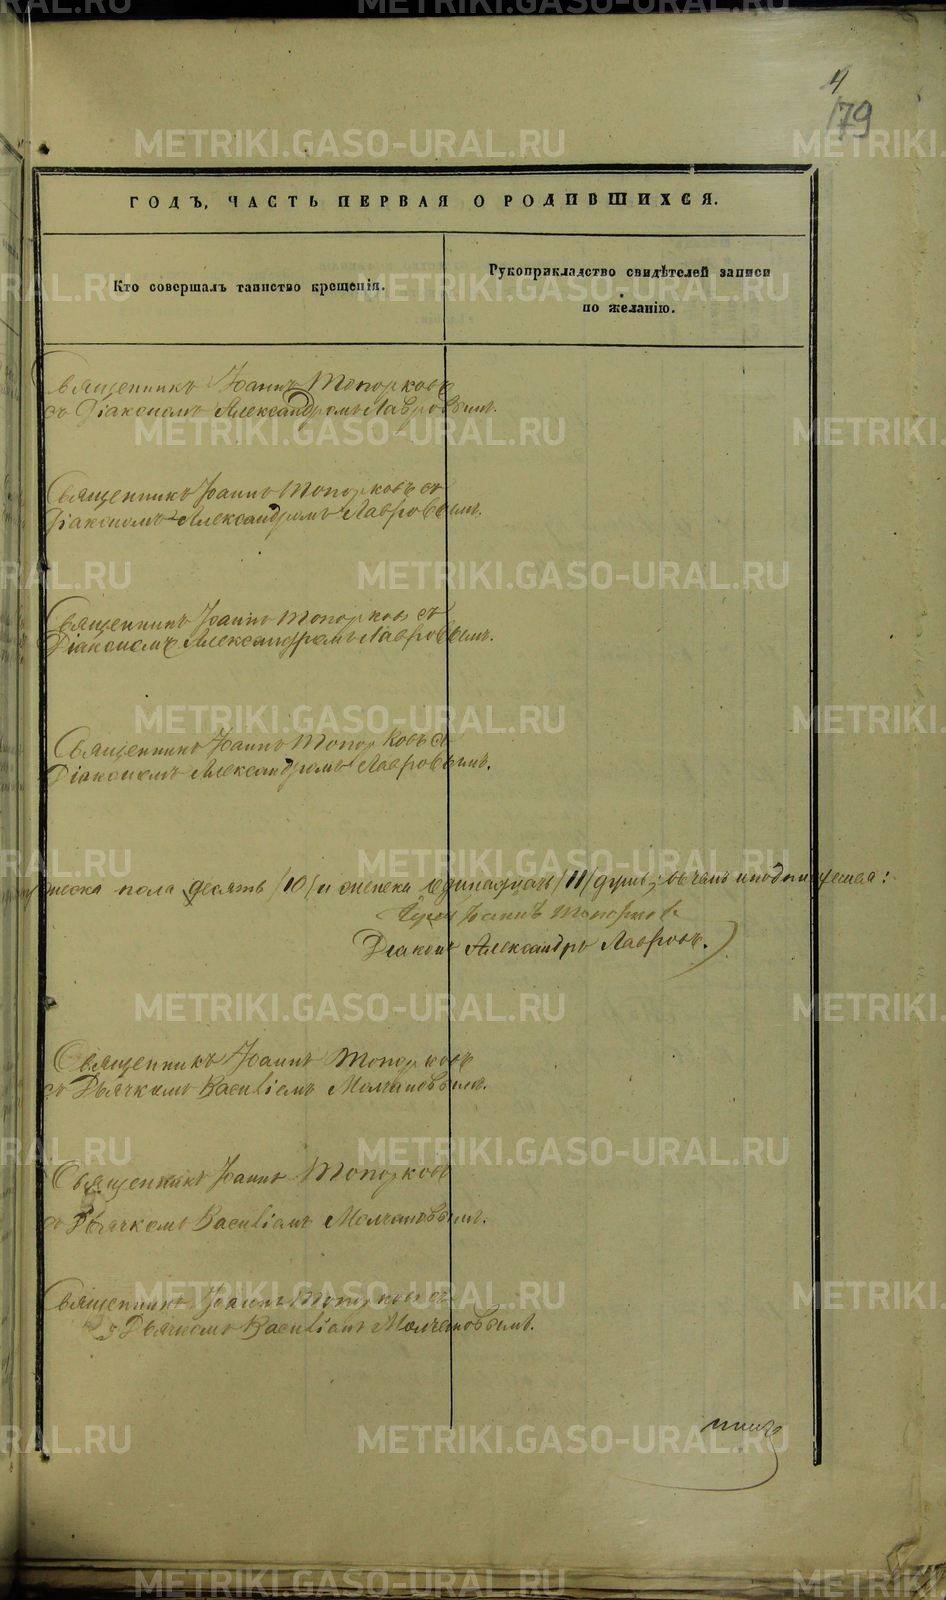 METRIKI.GASO-URAL.RU
4
179
ГОДЪ, ЧАСТЬ ПЕРВАЯ О РОДИВШИХСЯ.
Кто совершалъ таинство крещенія.
Рукоприкладство свидѣтелей записи
по желанію.
Священникъ Іоаннъ Топорковъ
съ Діакономъ Александромъ Лавровымъ.
Священникъ Іоаннъ Топорковъ съ
Діакономъ Александромъ Лавровымъ.
Священникъ Іоаннъ Топорковъ съ
Діакономъ Александромъ Лавровымъ.
Священникъ Іоаннъ Топорковъ съ
Діакономъ Александромъ Лавровымъ.
пола десять /10/ и женска одинадцать /11/ душъ;
Іоаннъ Топорковъ
Діаконъ Александръ Лавровъ.
Священникъ Іоаннъ Топорковъ
съ Дьячкомъ Василіемъ Молчановымъ.
Священникъ Іоаннъ Топорковъ
съ Дьячкомъ Василіемъ Молчановымъ.
Священникъ Іоаннъ Топорковъ съ
Дьячкомъ Василіемъ Молчановымъ.